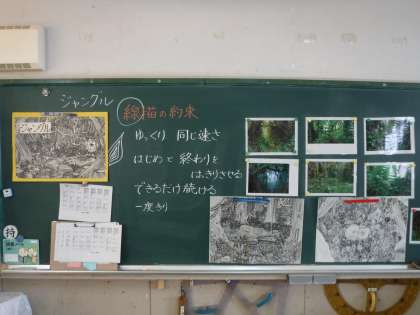 ジャングル
線描の約束
ゆっくり 同じ速さ
はじめと 終わりを
はっきりさせる
できるだけ続ける
一度きり
持